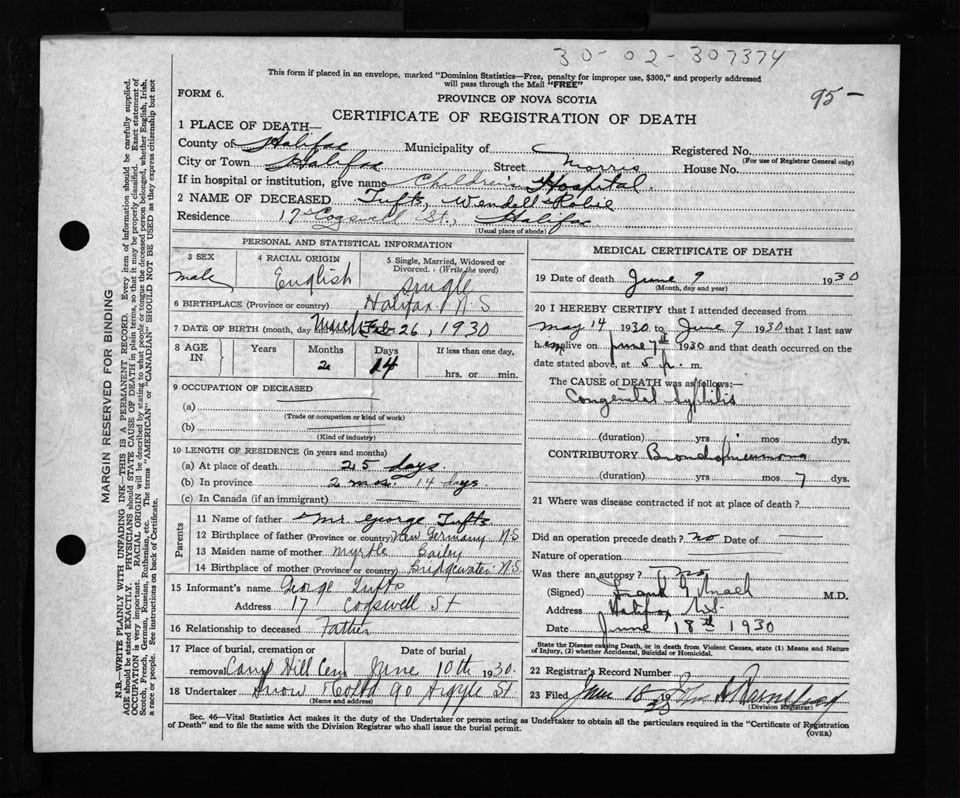 30-02-307374
This form if placed in an envelope, marked "Dominion Statistics—Free, penalty for improper use, $300," and properly addressed
will pass through the Mail "FREE"
95-
FORM 6.
PROVINCE OF NOVA SCOTIA
CERTIFICATE OF REGISTRATION OF DEATH
1 PLACE OF DEATH—
County of Halifax Municipality of Registered No.
(For use of Registrar General only)
City or Town Halifax Street Morris House No.
If in hospital or institution, give name Children's Hospital.
2 NAME OF DECEASED Tufts, Wendell Robie
Residence 17 Cogswell St., Halifax
(Usual place of abode)
PERSONAL AND STATISTICAL INFORMATION
3 SEX 4 RACIAL ORIGIN 5 Single, Married, Widowed or
Divorced. (Write the word)
male English Single
6 BIRTHPLACE (Province or country) Halifax N S
7 DATE OF BIRTH (month, day March Feb 26, 1930
8 AGE IN Years Months Days If less than one day,
2 14 hrs. or min.
9 OCCUPATION OF DECEASED
(a)
(Trade or occupation or kind of work)
(b)
(Kind of industry)
10 LENGTH OF RESIDENCE (in years and months)
(a) At place of death 25 days
(b) In province 2 mos. 14 days
(c) In Canada (if an immigrant)
Parents
11 Name of father Mr. George Tufts
12 Birthplace of father (Province or country) New Germany N.S
13 Maiden name of mother Myrtle Bailey
14 Birthplace of mother (Province or country) Bridgewater N.S
15 Informant's name George Tufts
Address 17 Cogswell St
16 Relationship to deceased Father
17 Place of burial, cremation or Date of burial
removal Camp Hill Cem June 10th 1930
18 Undertaker Snow & Co Ltd 90 Argyle St
(Name and address)
MEDICAL CERTIFICATE OF DEATH
19 Date of death June 9 1930
(Month, day and year)
20 I HEREBY CERTIFY that I attended deceased from
May 14 1930 to June 9 1930 that I last saw
him alive on June 7th 1930 and that death occurred on the
date stated above, at 5 p. m.
The CAUSE of DEATH was as follows:—
Congenital syphilis
(duration) yrs mos dys.
CONTRIBUTORY Bronchopneumonia
(duration) yrs mos 7 dys.
21 Where was disease contracted if not at place of death?
Did an operation precede death? no Date of
Nature of operation
Was there an autopsy? no
(Signed) Frank M.D.
Address Halifax N.S.
Date June 18th 1930
State the Disease causing Death, or in death from Violent Causes, state (1) Means and Nature
of Injury, (2) whether Accidental, Suicidal or Homicidal.
22 Registrar's Record Number
23 Filed June 18 John
(Division Registrar)
Sec. 46—Vital Statistics Act makes it the duty of the Undertaker or person acting as Undertaker to obtain all the particulars required in the "Certificate of Registration
of Death" and to file the same with the Division Registrar who shall issue the burial permit.
(OVER)
MARGIN RESERVED FOR BINDING
N.B.—WRITE PLAINLY WITH UNFADING INK—THIS IS A PERMANENT RECORD. Every item of information should be carefully supplied.
AGE should be stated EXACTLY. PHYSICIANS should STATE CAUSE OF DEATH in plain terms, so that it may be properly classified. Exact statement of
OCCUPATION is very important. RACIAL ORIGIN will be described by stating to what people or tongue the deceased person belonged, whether English, Irish,
Scotch, French, German, Russian, Ruthenian, etc. The terms "AMERICAN" or "CANADIAN" SHOULD NOT BE USED as they express citizenship but not
a race or people. See instructions on back of Certificate.